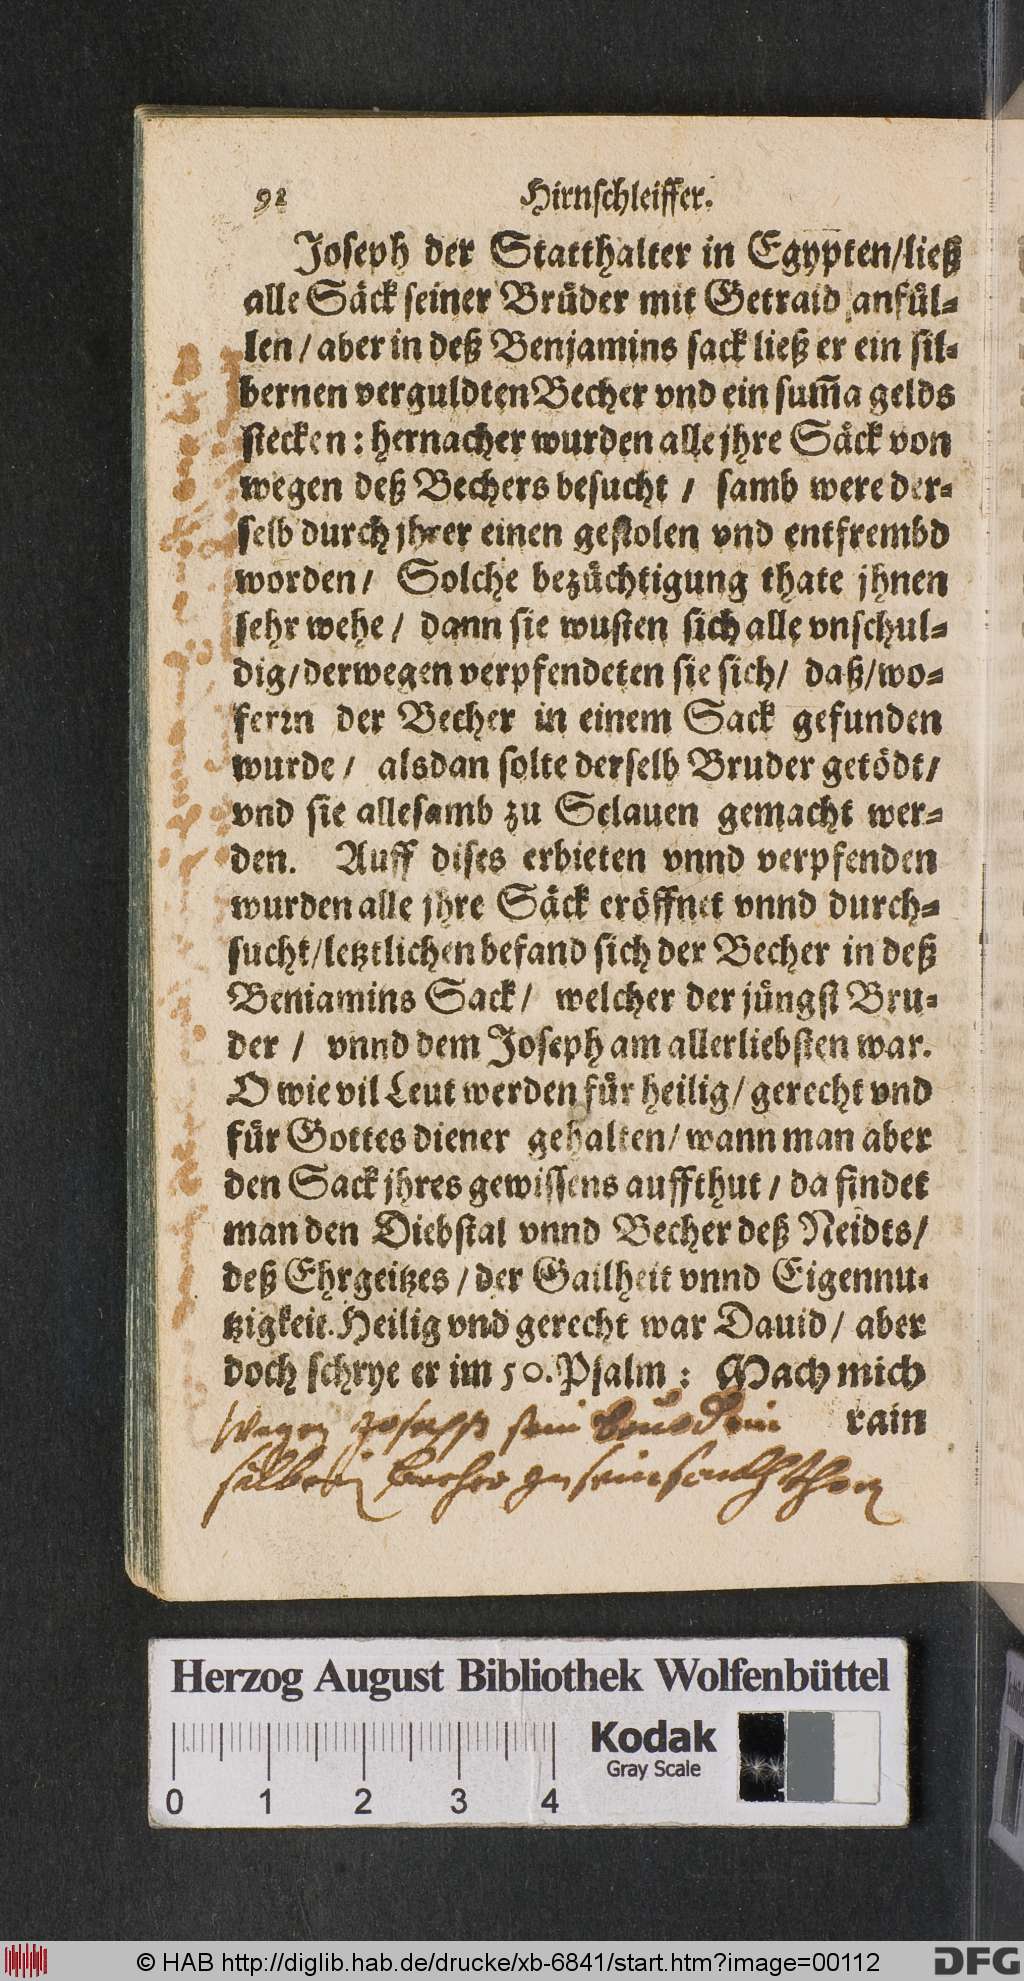 92 Hirnschleiffer.
Joseph der Statthalter in Egypten/ließ
alle Säck seiner Brüder mit Getraid anfül-
len / aber in deß Benjamins sack ließ er ein sil-
bernen verguldten Becher vnd ein sum̃a gelds
stecken: hernacher wurden alle jhre Säck von
wegen deß Bechers besucht / samb were der-
selb durch jhrer einen gestolen vnd entfrembd
worden/ Solche bezüchtigung thate jhnen
sehr wehe / dann sie wusten sich alle vnschul-
dig/derwegen verpfendeten sie sich/ daß/wo-
ferrn der Becher in einem Sack gefunden
wurde / alsdan solte derselb Bruder getödt/
vnd sie allesamb zu Sclauen gemacht wer-
den. Auff dises erbieten vnnd verpfenden
wurden alle jhre Säck eröffnet vnnd durch-
sucht/letztlichen befand sich der Becher in deß
Beniamins Sack/ welcher der jüngst Bru-
der / vnnd dem Joseph am allerliebsten war.
O wie vil Leut werden für heilig/ gerecht vnd
für Gottes diener gehalten/ wann man aber
den Sack jhres gewissens auffthut / da findet
man den Diebstal vnnd Becher deß Neidts/
deß Ehrgeitzes / der Gailheit vnnd Eigennu-
tzigkeit. Heilig vnd gerecht war Dauid/ aber
doch schrye er im 50. Psalm: Mach mich
rain
Wegen Joseph sein
silbern becher
Herzog August Bibliothek Wolfenbüttel
Kodak
Gray Scale
0 1 2 3 4
© HAB http://diglib.hab.de/drucke/xb-6841/start.htm?image=00112
DFG